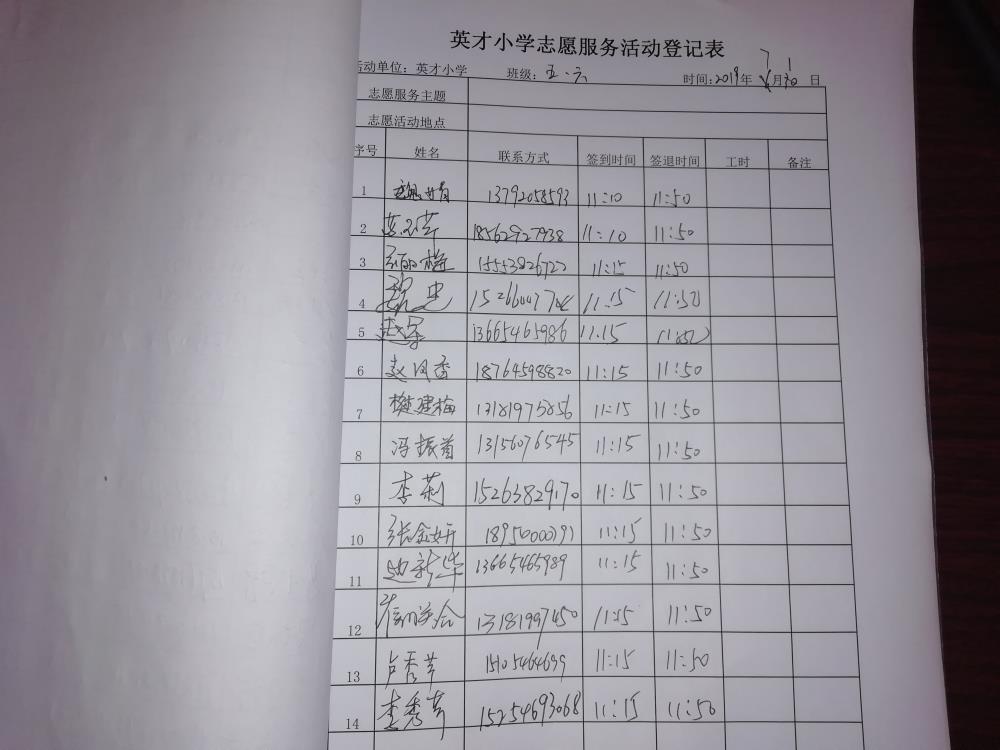 英才小学志愿服务活动登记表
活动单位：英才小学 班级：五.六 时间：2019年7月1日
志愿服务主题
志愿活动地点
序号 姓名 联系方式 签到时间 签退时间 工时 备注
1 13792058593 11:10 11:50
2 18562927938 11:10 11:50
3 15553826722 11:15 11:50
4 11:15 11:50
5 13665465986 11:15 11:50
6 赵风香 18764598820 11:15 11:50
7 樊建梅 13181975856 11:15 11:50
8 冯振首 13156076545 11:15 11:50
9 李莉 15263829170 11:15 11:50
10 张金妍 11:15 11:50
11 边新华 13665465989 11:15 11:50
12 13181997450 11:15 11:50
13 卢秀芳 11:15 11:50
14 李秀芳 15254693068 11:15 11:50